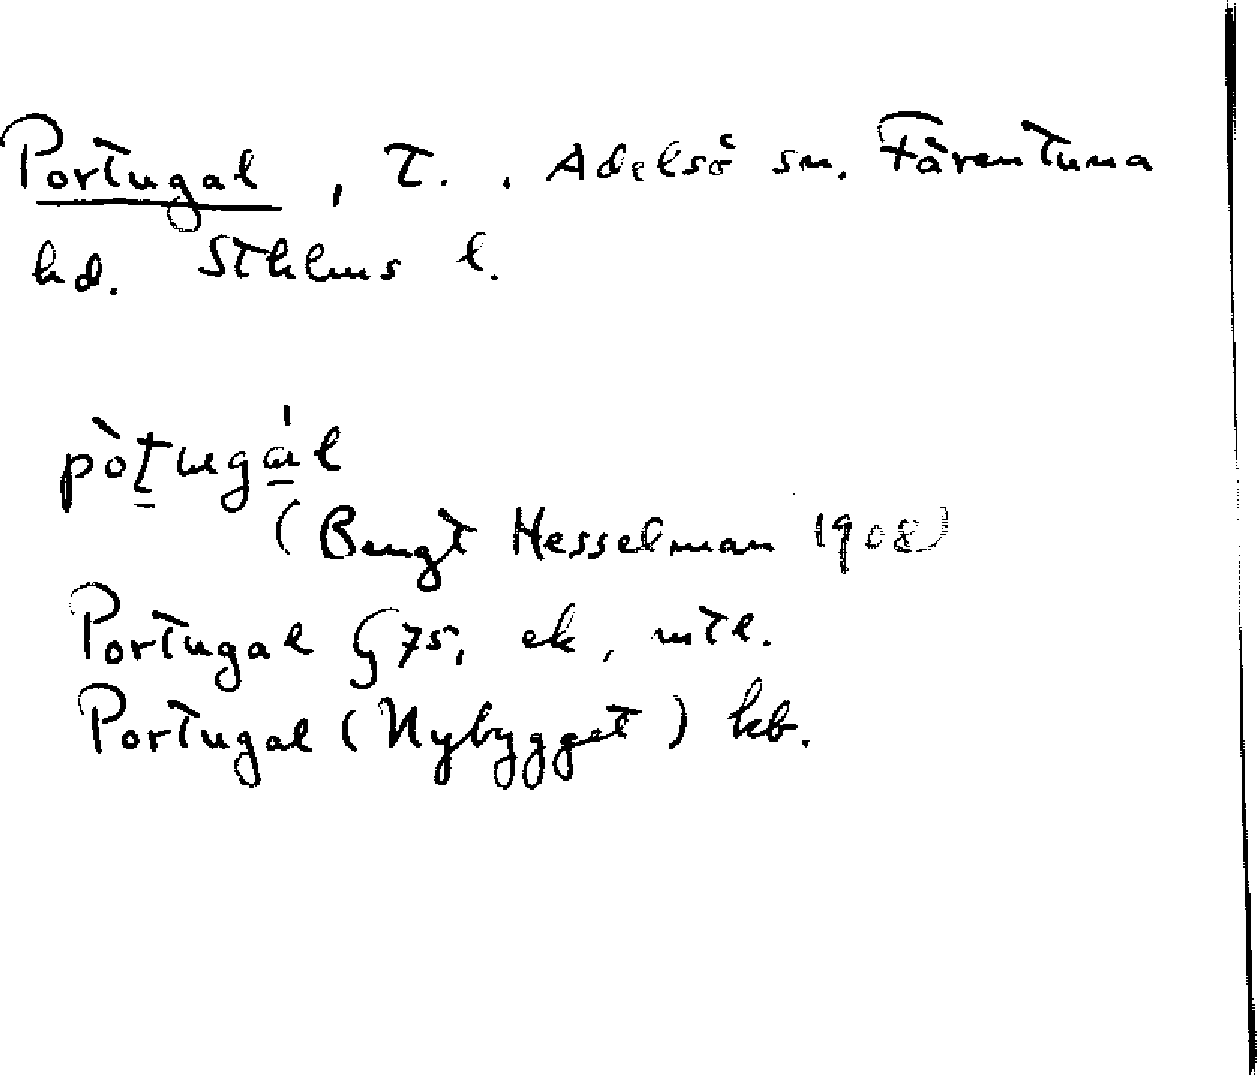 Portugal, T.. Adelsö sn. Färentuna
hd. Sthlms l.
pòtugál
(Bengt Hesselman 1908)
Portugal § 75, ek, mtl.
Portugal (Nybygget) kb.